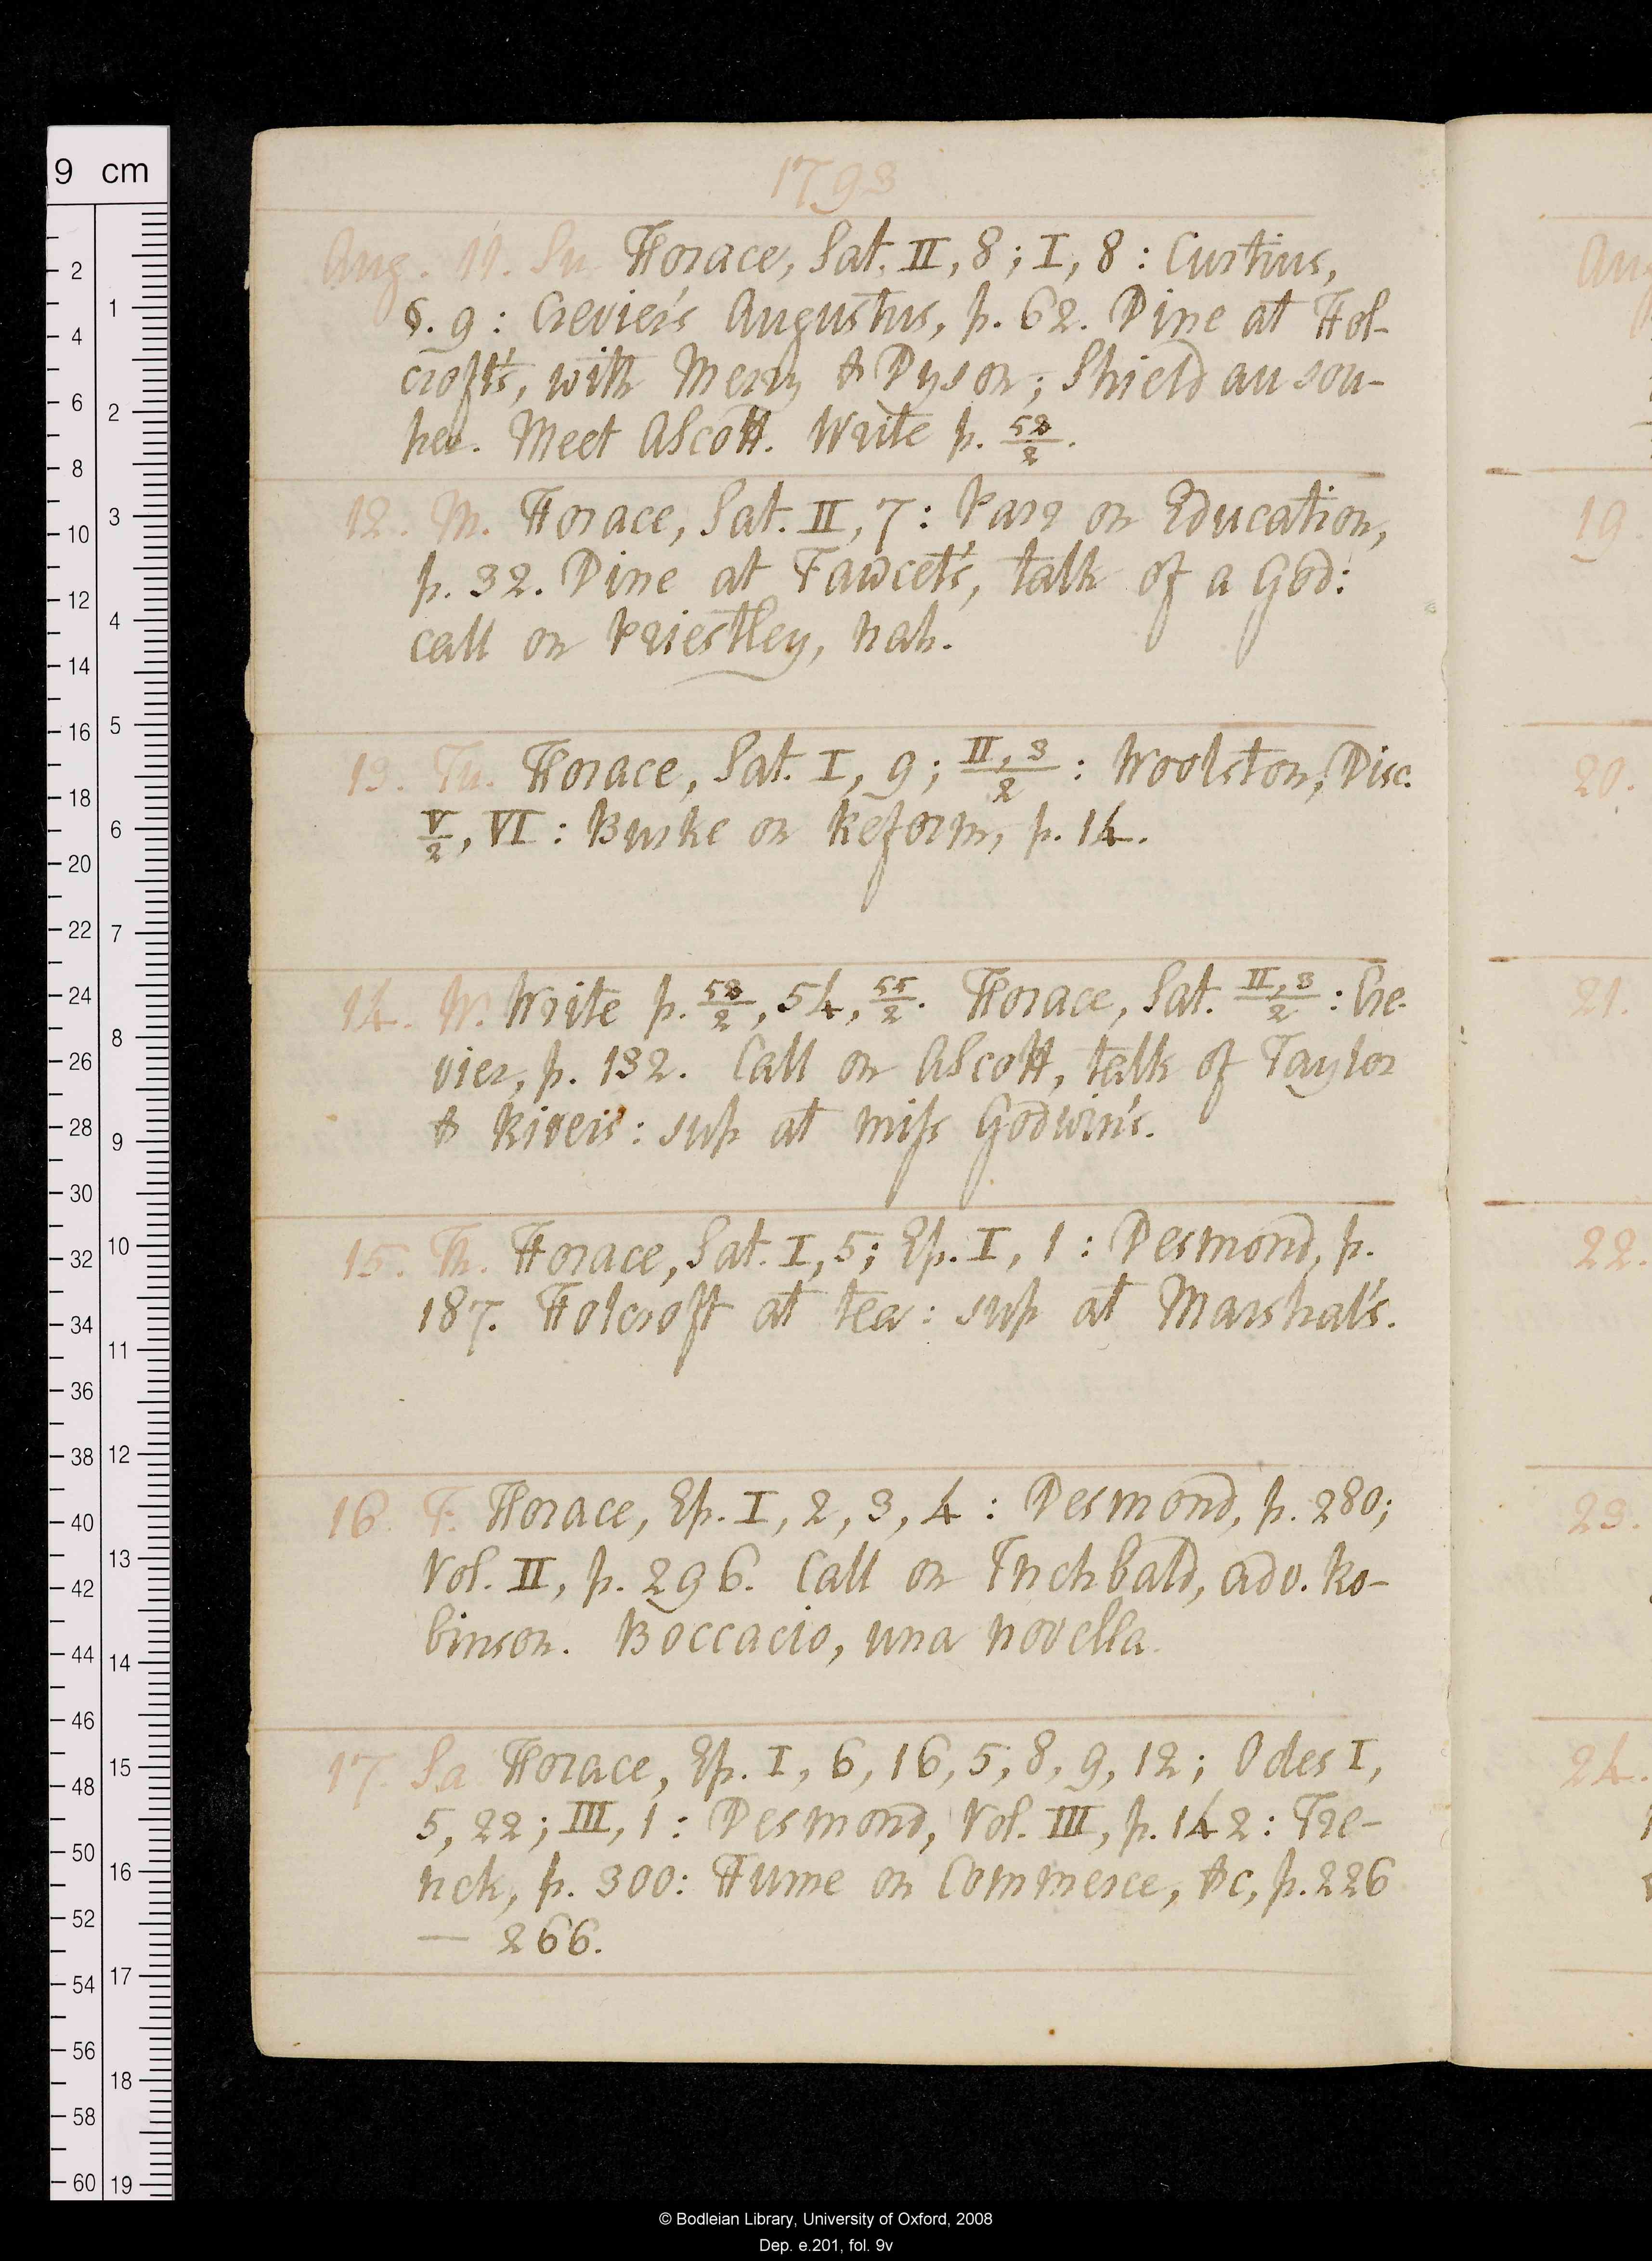 1793
Aug. 11. Su. Horace, Sat. II, 8; I, 8: Curtius,
§. 9: Crevier's Augustus, p. 62. Dine at Hol-
croft's, with Merry & Dyson; Shield au sou-
per. Meet AScott. Write p. 53/2.
12. M. Horace, Sat. II, 7: Parr on Education,
p. 32. Dine at Fawcet's, talk of a God:
call on Priestley, nah.
13. Tu. Horace, Sat. I, 9; II, 3/2: Woolston, Disc.
V/2, VI: Burke on Reform, p. 14.
14. W. Write p. 53/2, 54, 55/2. Horace, Sat. II, 3/2: Cre-
vier, p. 132. Call on AScott, talk of Taylor
& Rivers: sup at miss Godwin's.
15. Th. Horace, Sat. I, 5; Ep. I, 1: Desmond, p.
187. Holcroft at tea: sup at Marshal's.
16. F. Horace, Ep. I, 2, 3, 4: Desmond, p. 280;
Vol. II, p. 296. Call on Inchbald, adv. Ro-
binson. Boccacio, una novella.
17. Sa. Horace, Ep. I, 6, 16, 5, 8, 9, 12; Odes I,
5, 22; III, 1: Desmond, Vol. III, p. 142: Tre-
nck, p. 300: Hume on Commerce, &c, p. 226
— 266.
Au
19.
20.
21.
22.
23.
24.
9 cm
2 4 6 8 10 12 14 16 18 20 22 24 26 28 30 32 34 36 38 40 42 44 46 48 50 52 54 56 58 60
1 2 3 4 5 6 7 8 9 10 11 12 13 14 15 16 17 18 19
© Bodleian Library, University of Oxford, 2008
Dep. e.201, fol. 9v